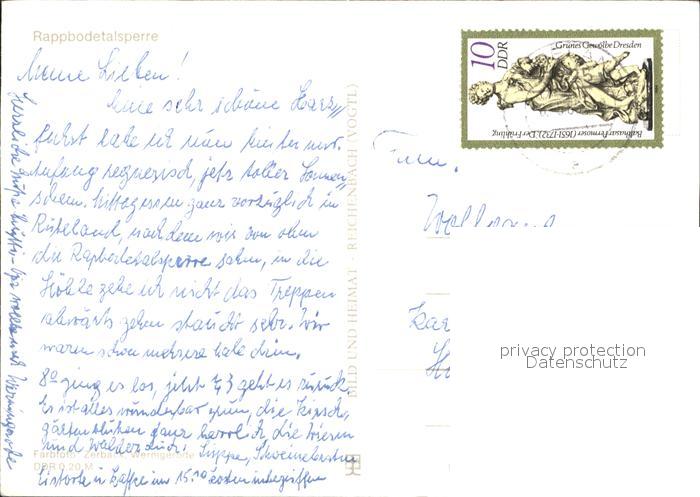 Rappbodetalsperre
Meine Lieben!
Eine sehr schöne Harz//
fahrt habe ich nun hinter mir.
Anfang regnerisch, jetzt toller Sonnen//
schein. Mittagessen ganz vorzüglich in
Rübeland, nachdem wir von oben
die Rapbodetalsperre sahen, in die
Höhle gehe ich nicht das Treppen
abwärts gehen staucht sehr. Wir
waren schon mehrere male drin.
8º ging es los, jetzt ¼ 3 geht es zurück.
Es ist alles wunderbar grün, die Kirsch,
gärten blühen ganz herrlich, die Wiesen
und Wälder auch. Suppe, Schweinebraten
Eistorte u Kaffee im 15.10 Kosten inbegriffen
Herzliche Grüße
Wernigerode
Farbfoto: Zerback, Wernigerode
DDR 0,20 M
BILD UND HEIMAT · REICHENBACH (VOGTL)
10
DDR
Grünes Gewölbe Dresden
Balthasar Permoser (1651-1732), Der Frühling
Fam.
privacy protection
Datenschutz